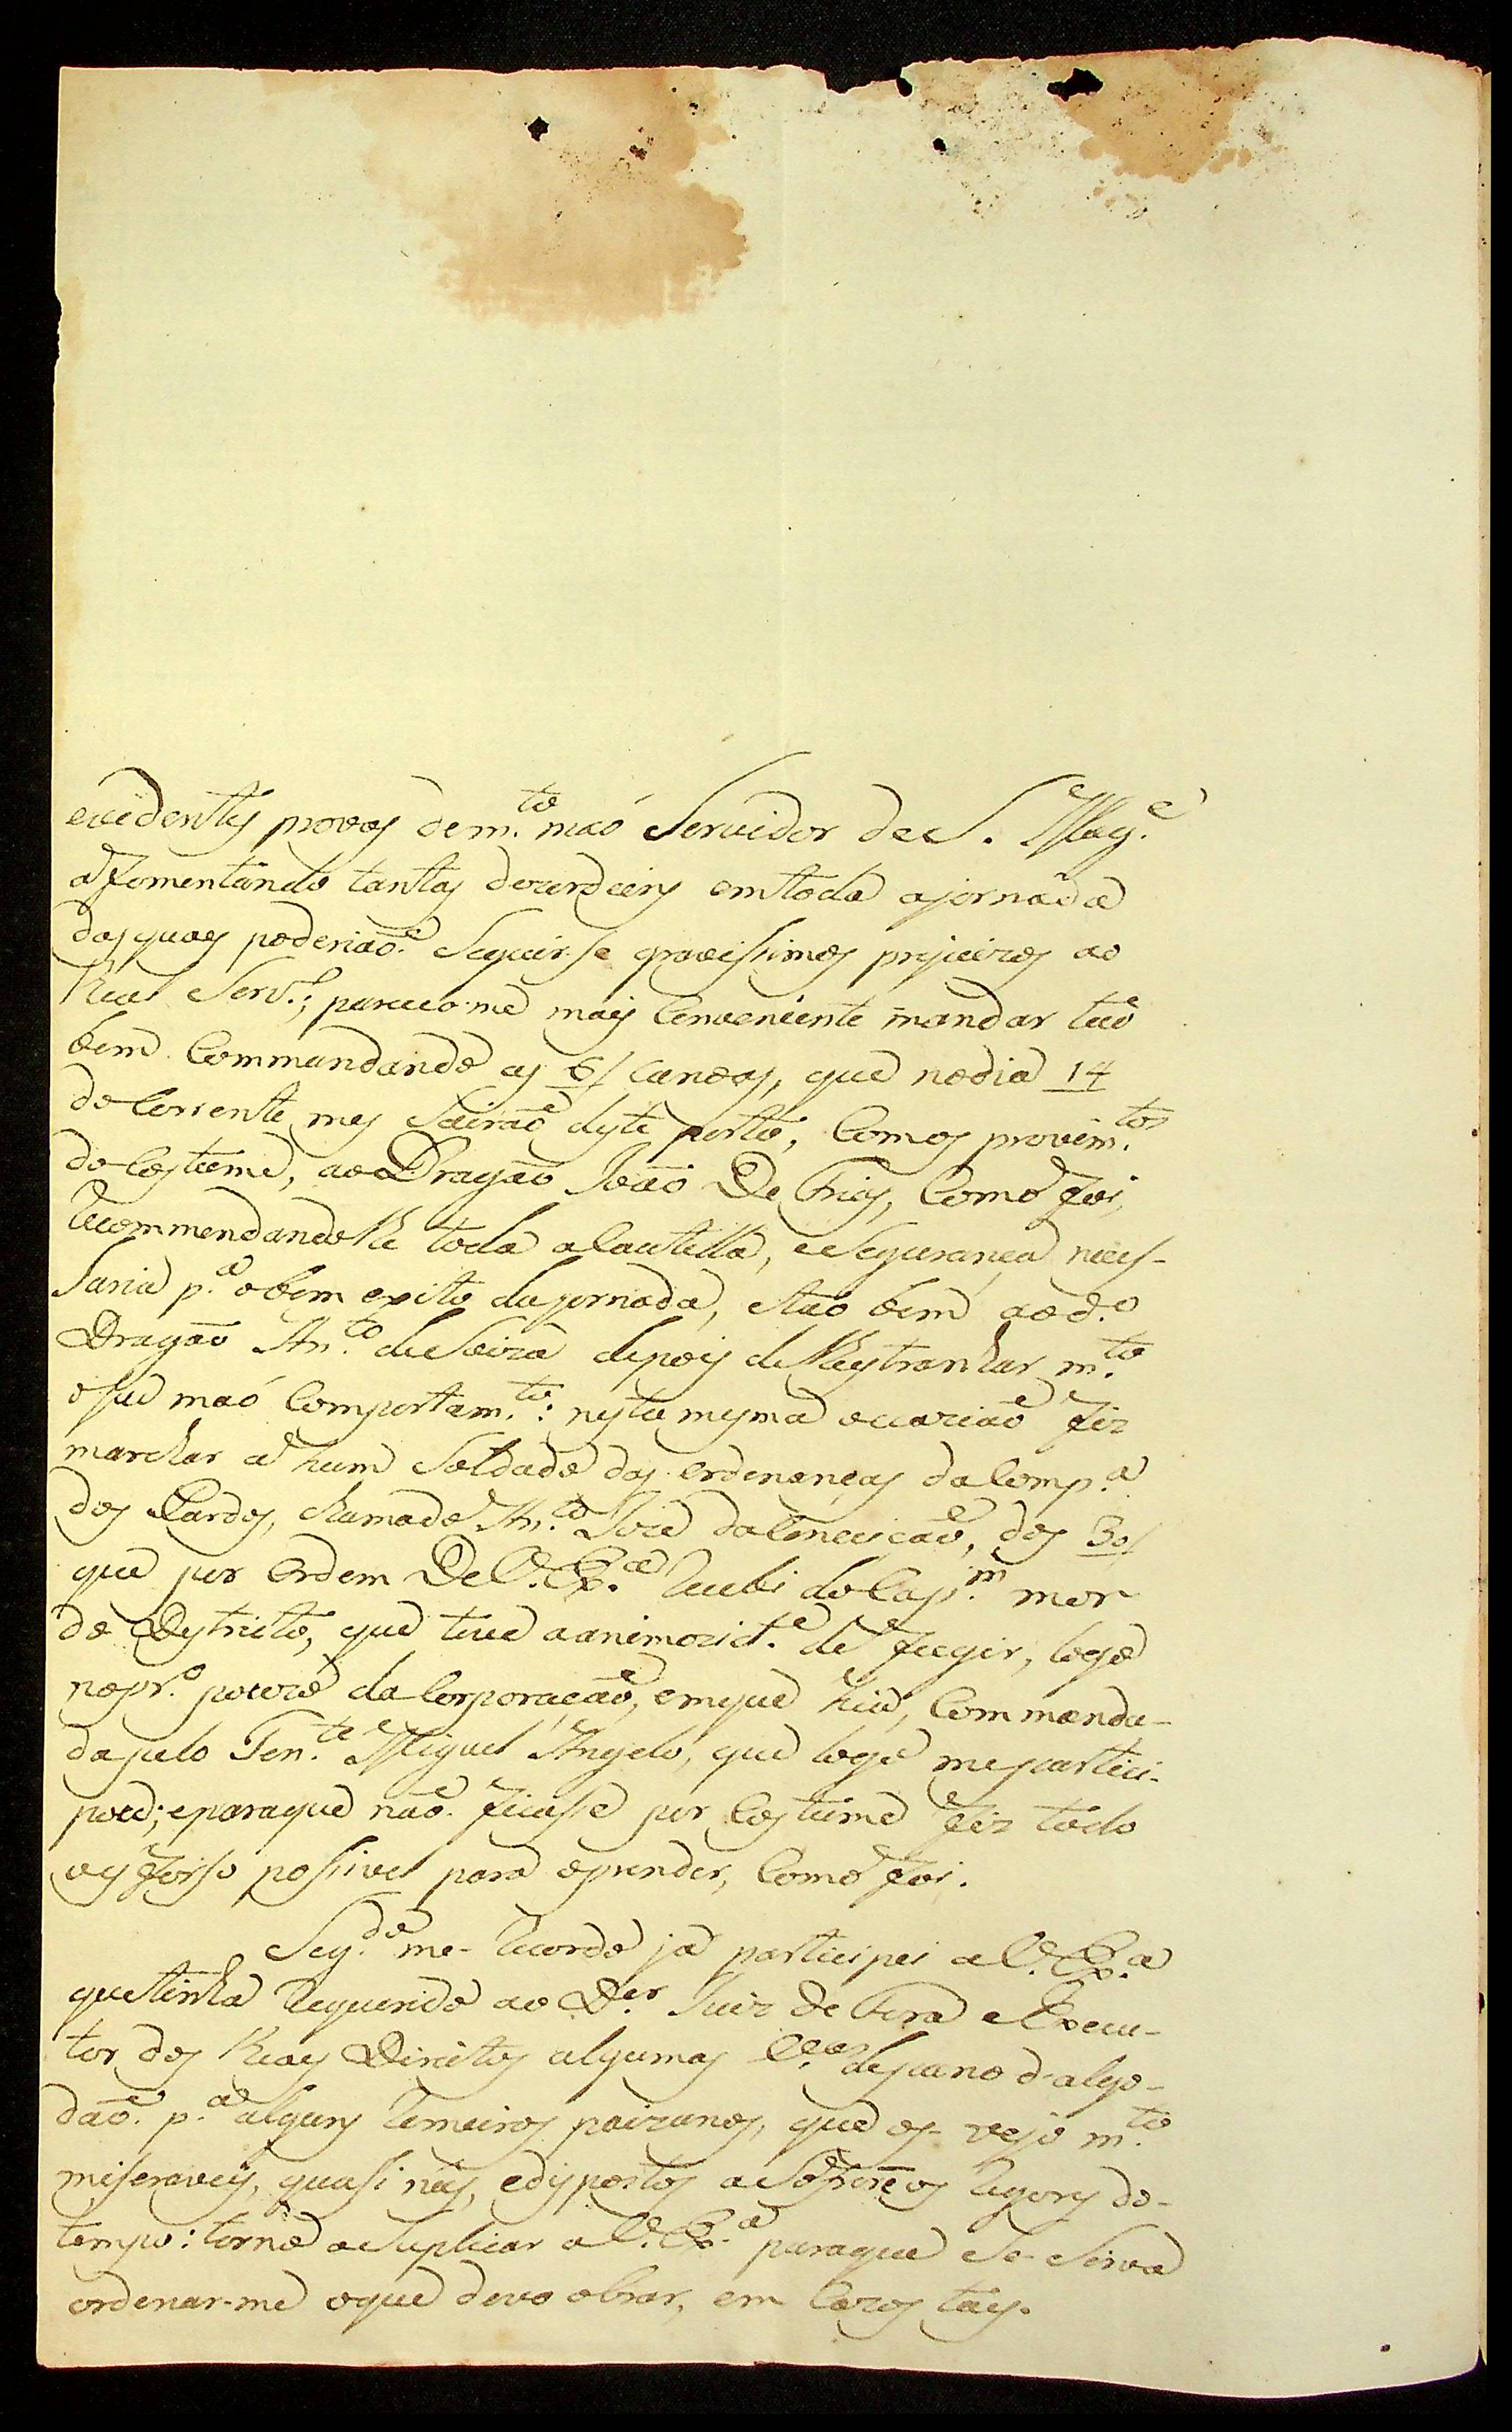 evidentes provas de m.to máo Servidor de S. Mag.e
afomentando tantas dezordeins em toda a jornada
das quaes poderiaõ Seguir-se gravissimos prejuizos ao
Real Serv.o; pareceo-me mais Conveniente mandar taõ
bem Commandando as 6/ Canoas, que no dia 14
do Corrente mes Sairaõ deste porto, Com os provim.tos
do Costume, ao Dragaõ Joaõ De Frias, Como foi,
recommendandolhe toda a Cautella, e Segurança neces-
saria p.a o bom exito da jornada, e taõ bem ao d.o
Dragaõ An.to de Souza depois de lhe estranhar m.to
o seu máo Comportam.to: nesta mesma occaziaõ fiz
marchar a hum Soldado das ordenanças da Comp.a
dos Pardos, chamado An.to Joze da Conceiçaõ, dos 30/
que por Ordem De V. Ex.a recebi do Cap.m mor
do Destrito, que teve a animozid.e de fugir, logo
no pr.o pouzo da Corporaçaõ, em que hia, Commanda-
da pelo Ten.te Miguel Angelo, que logo me partici-
pou; e para que naõ ficasse por Costume fiz todo
o esforso possivel para o prender, Como foi.
Seg.do me-recordo já participei a V. Ex.a
que tinha requerido ao D.or Juiz de Fora e Execu-
tor dos Reaes Direitos algumas V.as de pano d'algo-
daõ p.a alguns remeiros paizanos, que os-vejo m.to
miseraveis, quasi nús, e dispostos a Sofrerẽ os rigores do-
tempo: torno a Suplicar a V. Ex.a para que Se-Sirva
ordenar-me o que devo obrar, em Cazos taes.